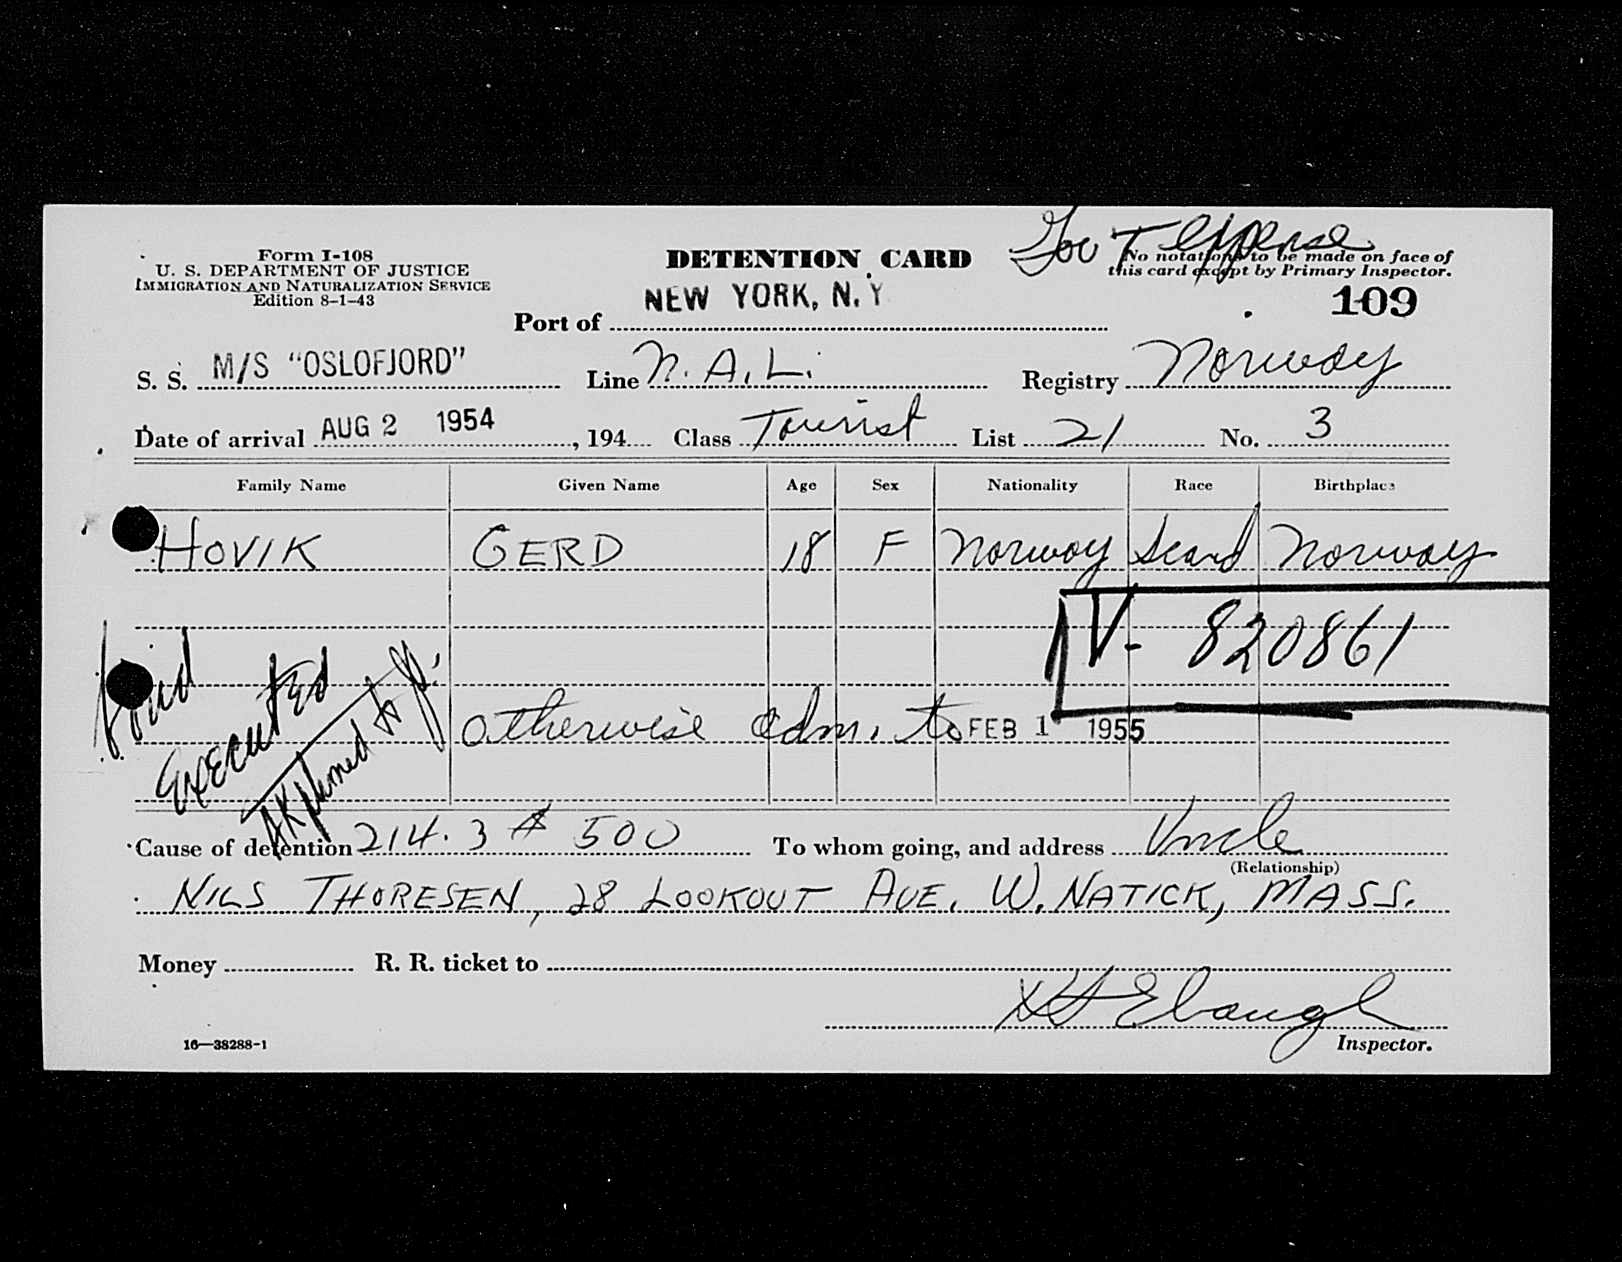 Form I-108
U. S. DEPARTMENT OF JUSTICE
IMMIGRATION AND NATURALIZATION SERVICE
Edition 8-1-43
DETENTION CARD
Gov't expense
No notations to be made on face of
this card except by Primary Inspector.
109
Port of NEW YORK, N. Y
S. S. M/S "OSLOFJORD" Line N. A. L. Registry Norway
Date of arrival AUG 2 1954, 194 Class Tourist List 21 No. 3
Family Name Given Name Age Sex Nationality Race Birthplace
HOVIK GERD 18 F Norway Scand Norway
V- 820861
Bond
Executed
otherwise adm. to FEB 1 1955
Cause of detention 214.3 $ 500 To whom going, and address Uncle
(Relationship)
NILS THORESEN, 28 LOOKOUT AVE. W. NATICK, MASS.
Money R. R. ticket to
Ebaugh
Inspector.
16—38288-1